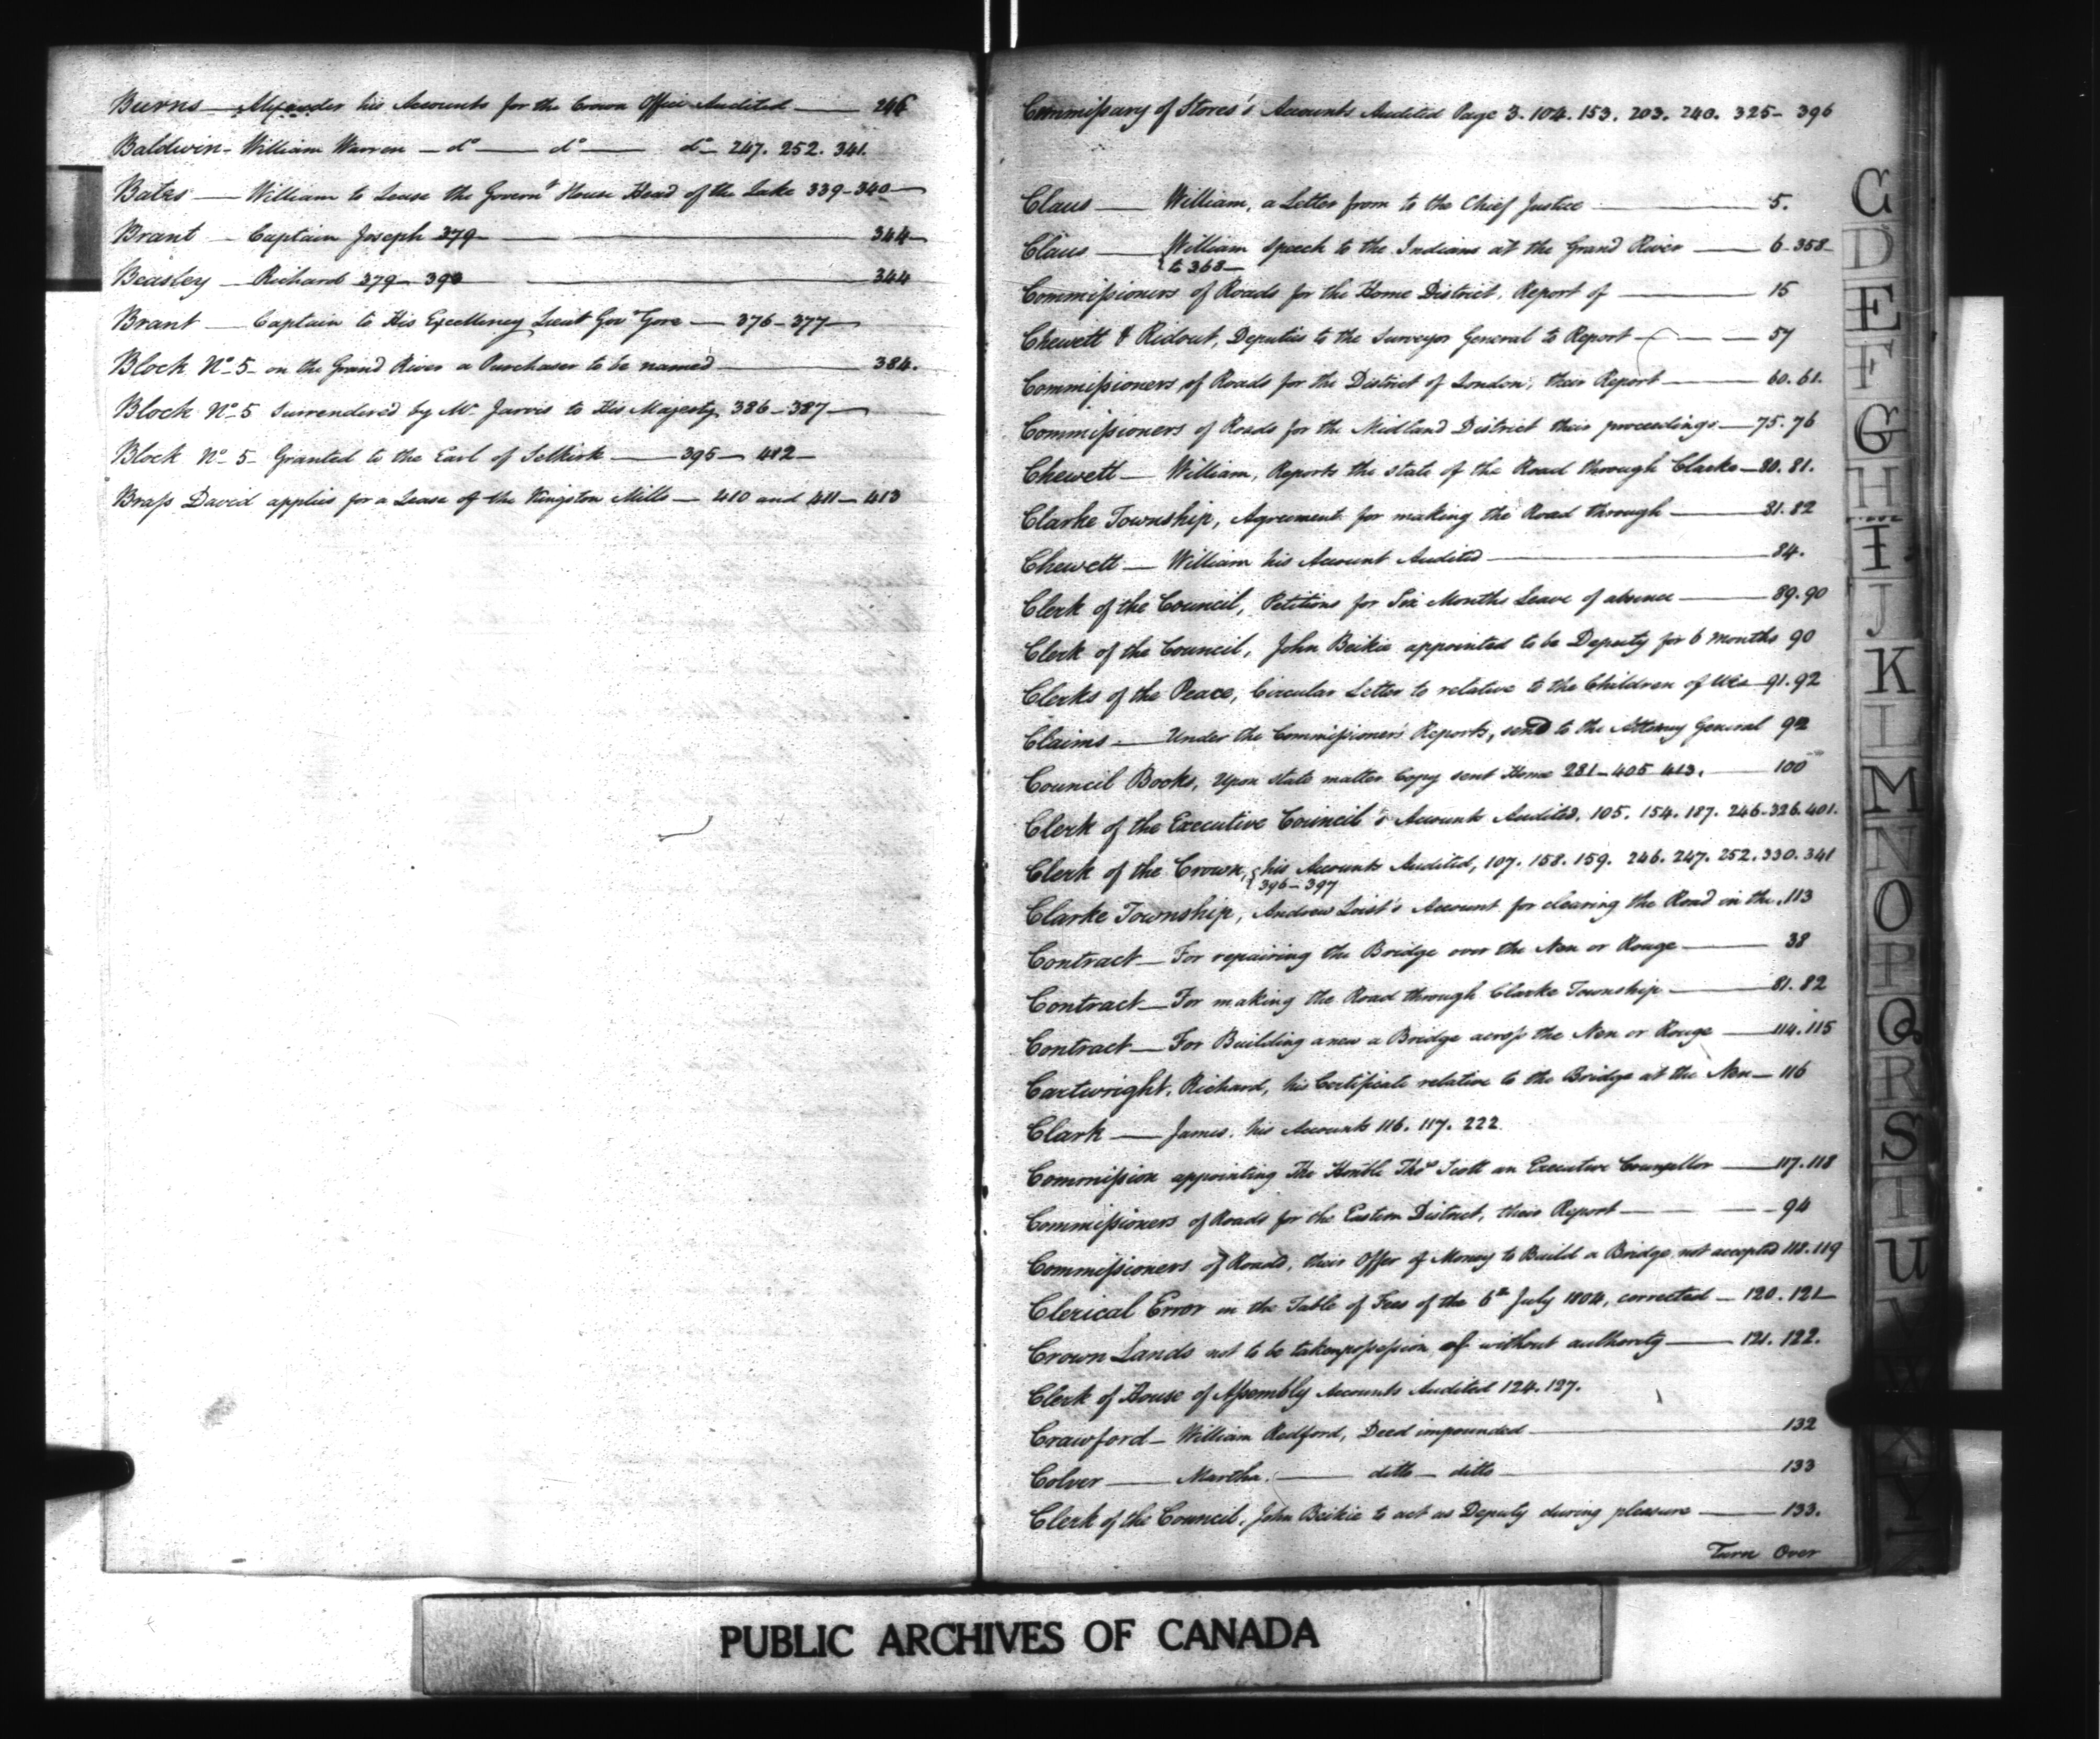 Burns — Alexander his Accounts for the Crown Office Audited — 246
Baldwin — William Warren — do — do — do — 247. 252. 341.
Bates — William to Lease the Governt House Head of the Lake 339-340 —
Brant — Captain Joseph 379 — 344
Beasley — Richard 379 — 344
Brant — Captain to His Excellency Lieut Govr Gore — 376-377 —
Block No 5 on the Grand River a Purchaser to be named — 384.
Block No 5 Surrendered by Mr Jarvis to His Majesty 386-387 —
Block No 5 Granted to the Earl of Selkirk — 395 — 412 —
Brass David applies for a Lease of the Kingston Mills — 410 and 411 — 413
Commissary of Stores's Accounts Audited Page 3. 104. 153. 203. 240. 325 - 396
Claus — William, a Letter from to the Chief Justice — 5.
Claus — William Speech to the Indians at the Grand River — 6-358
to 368 —
Commissioners of Roads for the Home District, Report of — 15
Chewett & Ridout, Deputies to the Surveyor General to Report — 57
Commissioners of Roads for the District of London, their Report — 60. 61.
Commissioners of Roads for the Midland District their proceedings — 75. 76
Chewett — William, Reports the state of the Road through Clarke — 80. 81.
Clarke Township, Agreement for making the Road through — 81. 82
Chewett — William his Account Audited — 84.
Clerk of the Council, Petitions for Six Months Leave of absence — 89. 90
Clerk of the Council, John Beikie appointed to be Deputy for 6 months 90
Clerks of the Peace, Circular Letter to relative to the Children of UEs — 91. 92
Claims — Under the Commissioners Reports, send to the Attorney General 92
Council Books, Upon state matter Copy sent Home 281-405 413. — 100
Clerk of the Executive Council's Accounts Audited, 105. 154. 187. 246-326. 401.
Clerk of the Crown, his Accounts Audited, 107. 158. 159. 246. 247. 252. 330. 341
396-397
Clarke Township, Andrew Account for clearing the Road in the. 113
Contract — For repairing the Bridge over the Nen or Rouge — 38
Contract — For making the Road through Clarke Township — 81. 82
Contract — For Building anew a Bridge across the Nen or Rouge — 114. 115
Cartwright, Richard, his Certificate relative to the Bridge at the Nen — 116
Clark — James, his Accounts 116. 117. 222
Commission appointing The Honble Thos Scott an Executive Counsellor — 117. 118
Commissioners of Roads for the Eastern District, their Report — 94
Commissioners of Roads, their Offer of Money to Build a Bridge not accepted 118. 119
Clerical Error in the Table of Fees of the 6th July 1804, corrected — 120. 121
Crown Lands not to be taken possession of without authority — 121. 122.
Clerk of House of Assembly Accounts Audited 124. 127.
Crawford — William Redford, Deed impounded — 132
Colver — Martha — ditto — ditto — 133
Clerk of the Council, John Beikie to act as Deputy during pleasure — 133.
Turn Over
C
D
E
F
G
H
I
J
K
L
M
N
O
P
Q
R
S
T
U
V
W
X
Y
Z
PUBLIC ARCHIVES OF CANADA